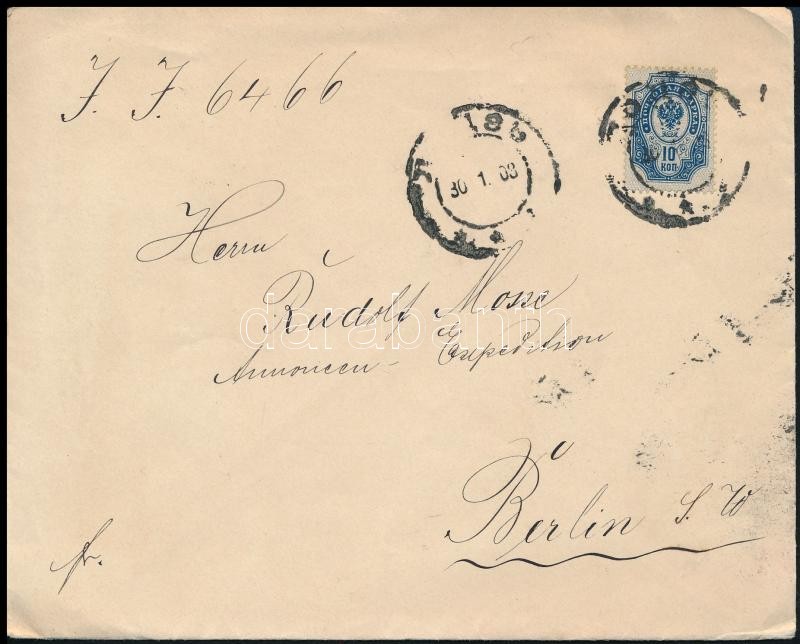 J. J. 6466
30.1.03
ПОЧТОВАЯ МАРКА
10
КОП
Herrn
Rudolf Mosse
Annoncen-Expedition
Berlin S. W
fr.
darabanth